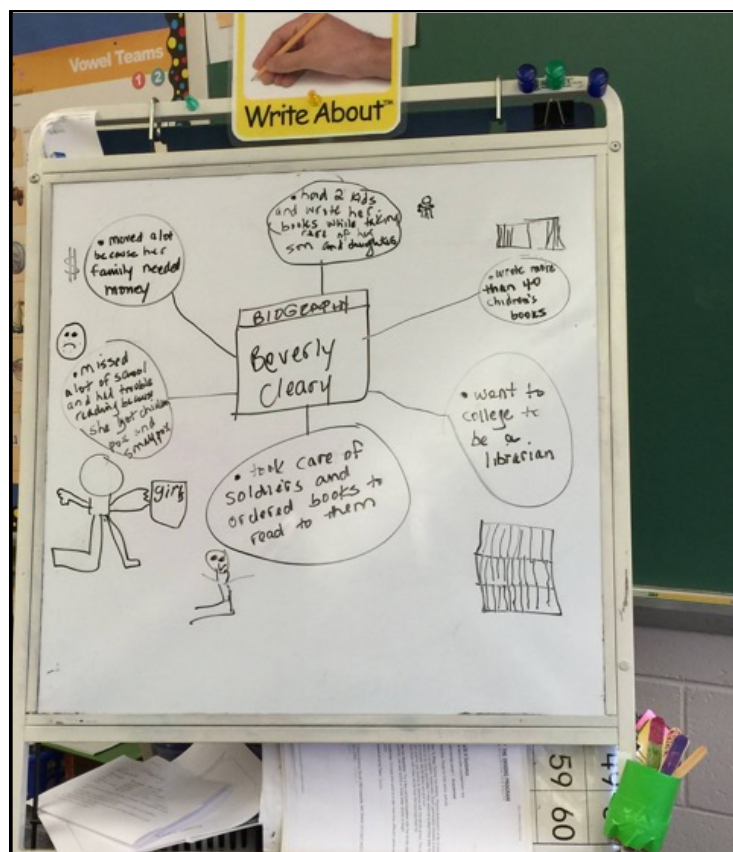 Vowel Teams
1 2
Write About™
• had 2 kids
and wrote her
books while taking
care of her
son and daughter
• moved a lot
because her
family needed
money
• wrote more
than 40
children's
books
BIOGRAPHY
Beverly
Cleary
• missed
a lot of school
and had trouble
reading because
she got chicken
pox and
smallpox
• went to
college to
be a
librarian
• took care of
soldiers and
ordered books to
read to them
girl
59
60
49